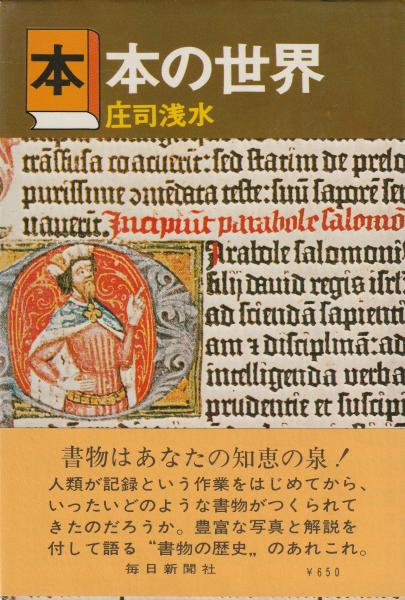 本
本の世界
庄司浅水
trāsfusa coacuerit: sed statim de prelo
purissime ꝯmēdata teste: suū saporē ser
uauerūt. Incipiūt parabole salomō
Parabole salomonis
filij dauid regis isrl:
ad sciendā sapienti
am ⁊ disciplinā: ad
intelligenda verba
prudentie et suscipi
書物はあなたの知恵の泉!
人類が記録という作業をはじめてから、
いったいどのような書物がつくられて
きたのだろうか。豊富な写真と解説を
付して語る“書物の歴史„のあれこれ。
毎日新聞社
¥650